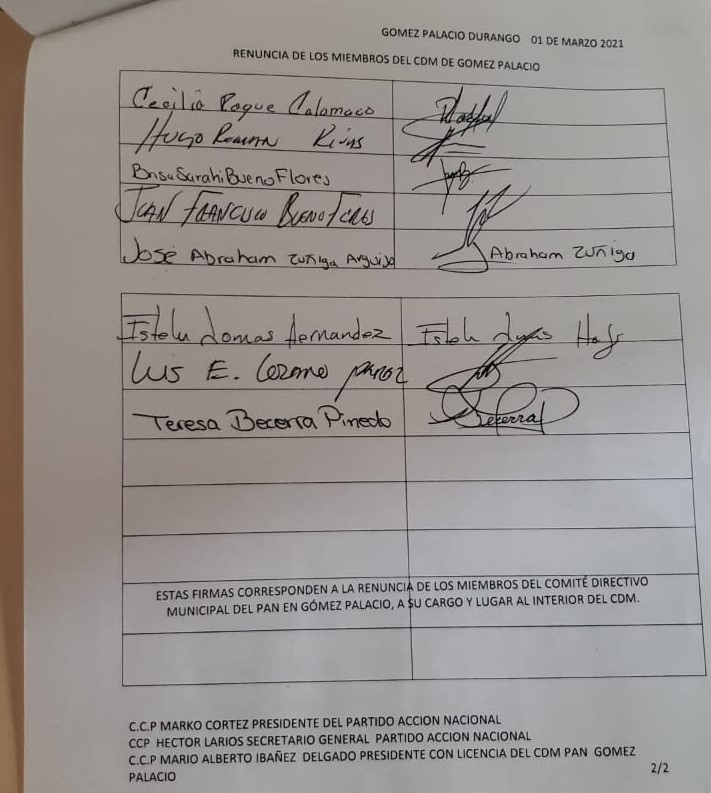 GOMEZ PALACIO DURANGO 01 DE MARZO 2021
RENUNCIA DE LOS MIEMBROS DEL CDM DE GOMEZ PALACIO
Cecilia Roque Calamaco
Hugo Roman Rivas
Brisa Sarahi Bueno Flores
Juan Francisco Bueno
José Abraham Zuñiga Arguijo Abraham Zuñiga
Estela Lomas Hernandez Estela
Luis E. Lozano
Teresa Becerra Pinedo Becerra P
ESTAS FIRMAS CORRESPONDEN A LA RENUNCIA DE LOS MIEMBROS DEL COMITÉ DIRECTIVO
MUNICIPAL DEL PAN EN GÓMEZ PALACIO, A SU CARGO Y LUGAR AL INTERIOR DEL CDM.
C.C.P MARKO CORTEZ PRESIDENTE DEL PARTIDO ACCION NACIONAL
CCP HECTOR LARIOS SECRETARIO GENERAL PARTIDO ACCION NACIONAL
C.C.P MARIO ALBERTO IBAÑEZ DELGADO PRESIDENTE CON LICENCIA DEL CDM PAN GOMEZ
PALACIO
2/2